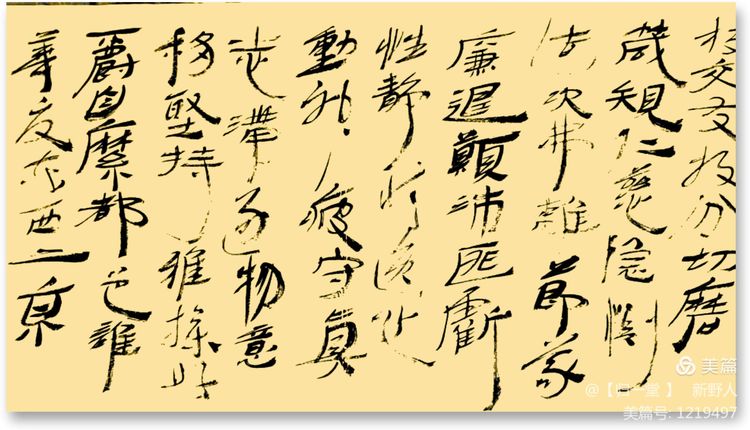 交友投分切磨
箴規仁慈隱惻
造次弗離節義
廉退顛沛匪虧
性靜情逸心
動神疲守真
志滿逐物意
移堅持雅操好
爵自縻都邑
華夏東西二京
美篇
@【归一堂】 新野人
美篇号: 1219497